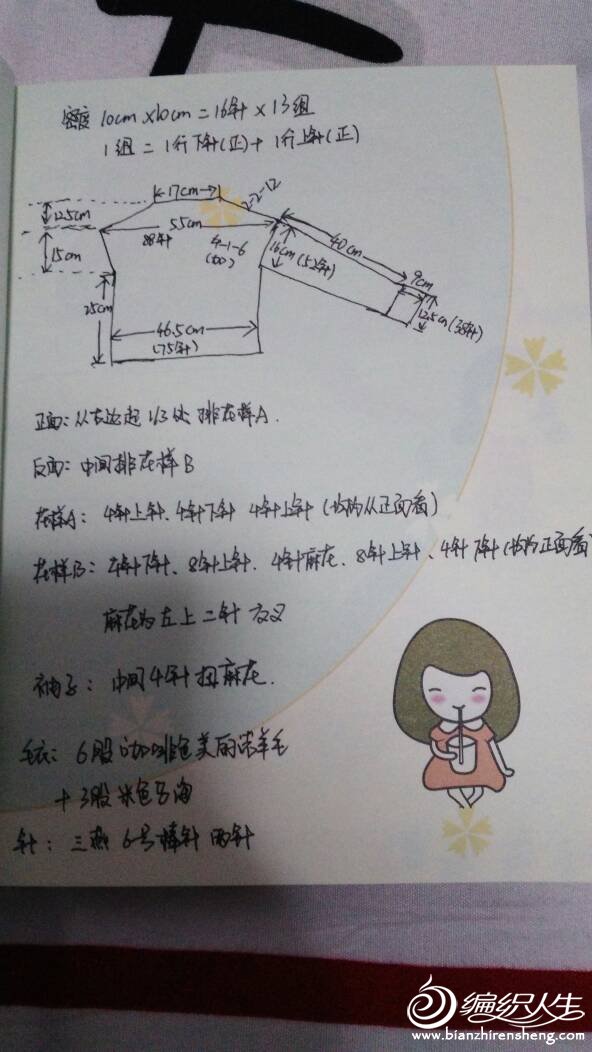 密度 10cm×10cm=16针×13组
1组=1行下针(正)+1行上针(正)
17cm
2-2-12
12.5cm
55cm
88针
15cm
4-1-6
16cm(52针)
40cm
9cm
12.5cm(38针)
25cm
46.5cm
(75针)
正面:从右边起1/3处排花样A.
反面:中间排花样B
花样A: 4针上针、4针下针 4针上针(均为从正面看)
花样B: 4针下针、8针上针、4针麻花、8针上针、4针下针(均为正面看)
麻花为左上二针交叉
袖子:中间4针扭麻花.
毛衣: 6股咖啡色美丽诺羊毛
+3股米色马海
针:三燕6号棒针
编织人生
www.bianzhirensheng.com